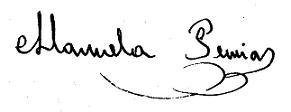 Manuela Pernia